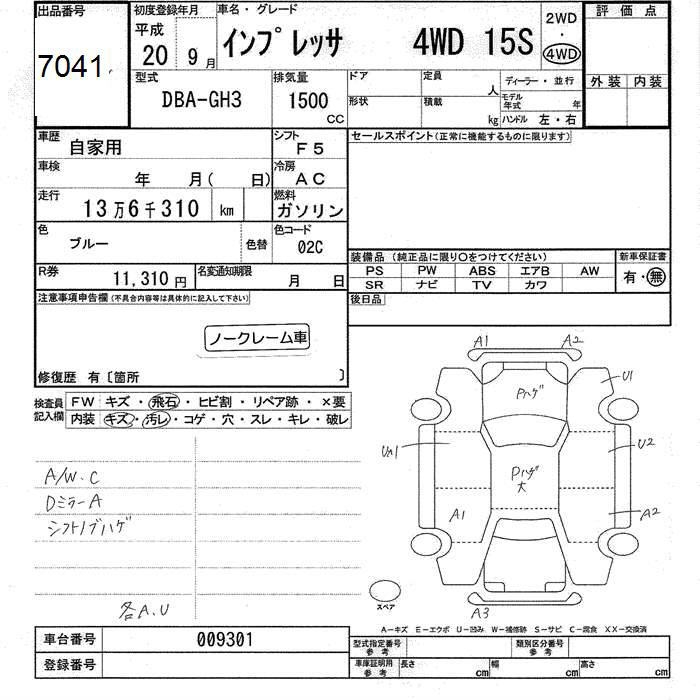 出品番号 初度登録年月 車名・グレード 2WD 評価点
7041 平成 20 9月 インプレッサ 4WD 15S ・ 4WD
外装 内装
型式 DBA-GH3 排気量 1500 CC ドア 定員 人 ディーラー・並行
形状 積載 kg モデル年式 年
ハンドル 左・右
車歴 自家用 シフト F5 セールスポイント(正常に機能するものに限ります)
車検 年 月( 日) 冷房 AC
走行 13万6千310 km 燃料 ガソリン
色 ブルー 色替 色コード 02C
装備品(純正品に限り○をつけてください) 新車保証書
PS PW ABS エアB AW 有・無
SR ナビ TV カワ
R券 11,310円 名変通知期限 月 日
後日品
注意事項申告欄(不具合内容等は具体的に記入して下さい)
ノークレーム車
修復歴 有〔箇所 〕
検査員記入欄 FW キズ・飛石・ヒビ割・リペア跡・×要
内装 キズ・汚レ・コゲ・穴・スレ・キレ・破レ
A1 A2
Pハゲ U1
U2
Pハゲ大
A1 A2
A3
A/W.C
DミラーA
シフトノブハゲ
各A.U
スペア
A-キズ E-エクボ U-凹み W-補修跡 S-サビ C-腐食 XX-交換済
車台番号 009301 型式指定番号 参考 類別区分番号 参考
登録番号 車庫証明用 参考 長さ cm 幅 cm 高さ cm